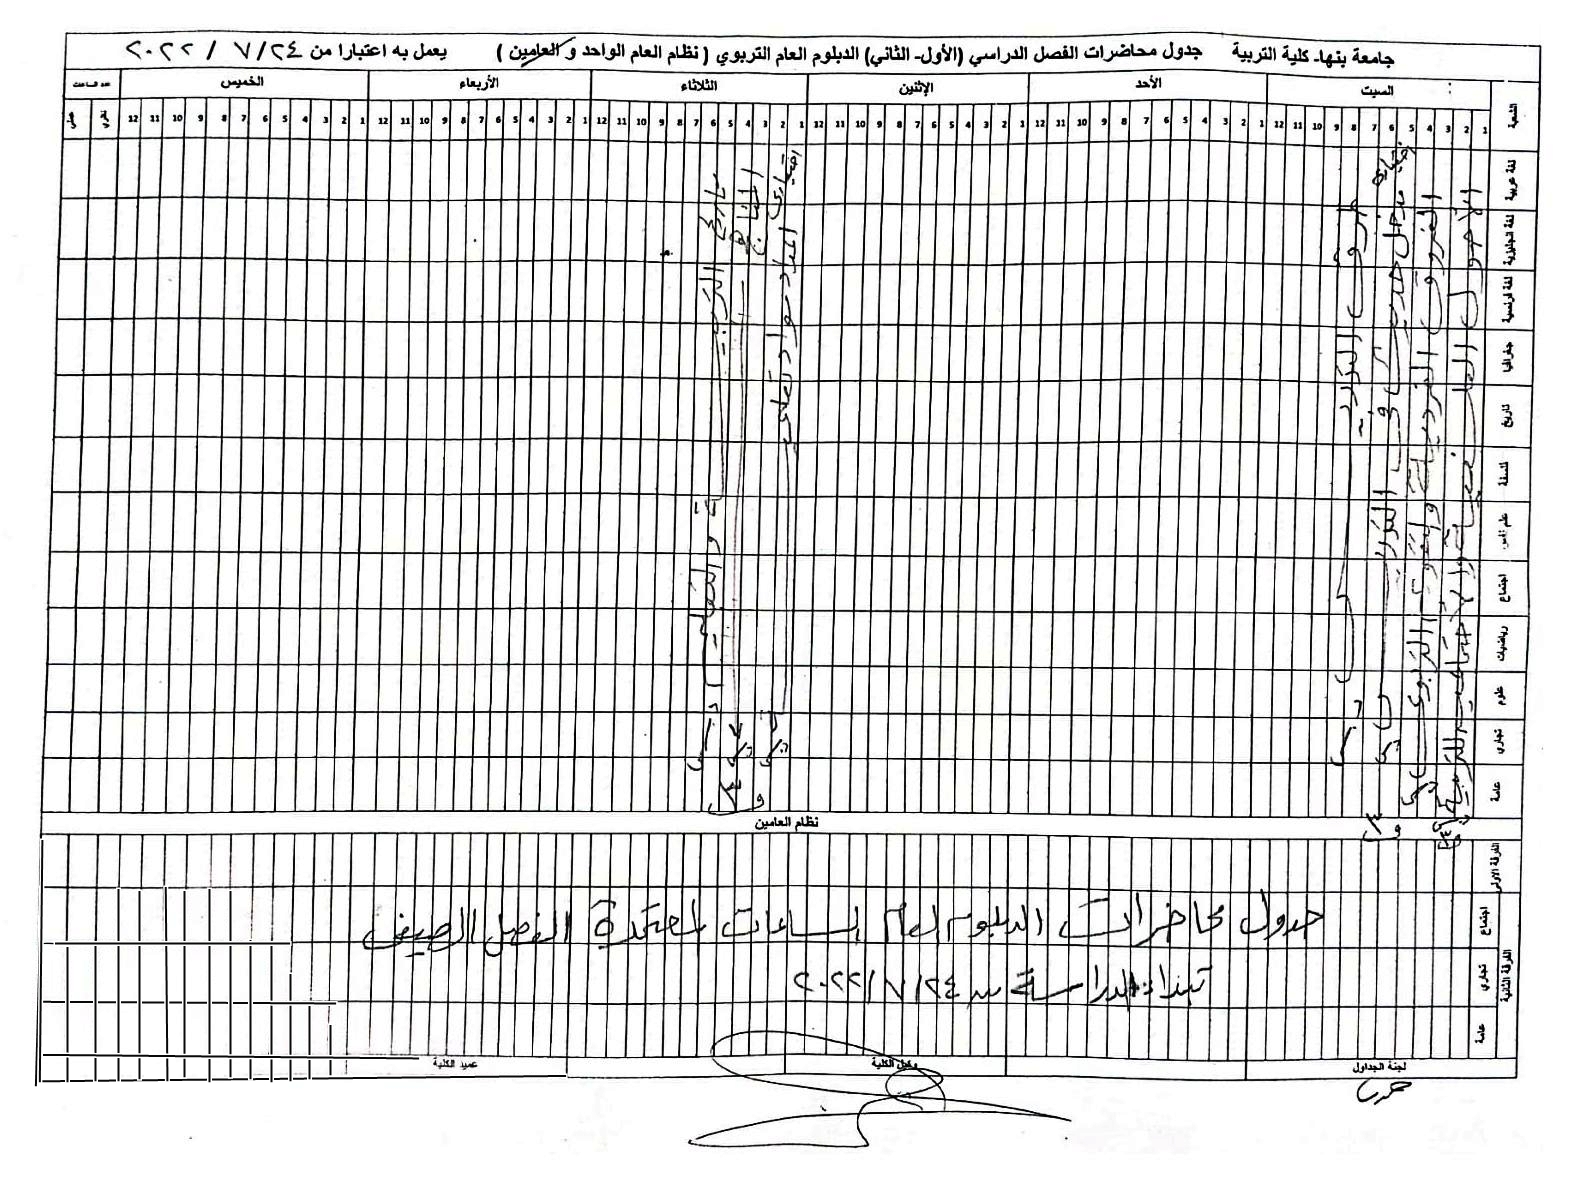 جامعة بنها۔ كلية التربية جدول محاضرات الفصل الدراسي (الأول۔ الثاني) الدبلوم العام التربوي ( نظام العام الواحد و العامين ) يعمل به اعتبارا من ٢٠٢٢ / ٧ / ٢٤
الشعبة السبت الأحد الإثنين الثلاثاء الأربعاء الخميس عدد الساعات
1 2 3 4 5 6 7 8 9 10 11 12 1 2 3 4 5 6 7 8 9 10 11 12 1 2 3 4 5 6 7 8 9 10 11 12 1 2 3 4 5 6 7 8 9 10 11 12 1 2 3 4 5 6 7 8 9 10 11 12 1 2 3 4 5 6 7 8 9 10 11 12 نظري عملي
لغة عربية
لغة انجليزية
لغة فرنسية
جغرافيا
تاريخ
فلسفة
علم نفس
اجتماع
رياضيات
علوم
تجاري
عامة
الأصول الفلسفية والاجتماعية للتربية
الفروق الفردية والتقويم التربوي
اختياري مدخل
طرق التدريس
اختياري إعداد مواد تعليمية
المناهج
تاريخ التربية والتعليم
نظام العامين
الفرقة الاولى
الفرقة الثانية
اجتماع
تجاري
عامة
جدول محاضرات الدبلوم العام بالساعات المعتمدة الفصل الصيفي
تبدأ الدراسة من ٢٠٢٢/٧/٢٤
لجنة الجداول وكيل الكلية عميد الكلية